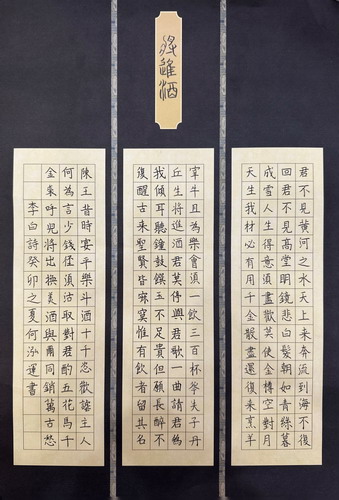 將進酒
君不見黃河之水天上來奔流到海不復
回君不見高堂明鏡悲白髮朝如青絲暮
成雪人生得意須盡歡莫使金樽空對月
天生我材必有用千金散盡還復來烹羊
宰牛且為樂會須一飲三百杯岑夫子丹
丘生將進酒君莫停與君歌一曲請君為
我傾耳聽鐘鼓饌玉不足貴但願長醉不
復醒古來聖賢皆寂寞惟有飲者留其名
陳王昔時宴平樂斗酒十千恣歡謔主人
何為言少錢徑須沽取對君酌五花馬千
金裘呼兒將出換美酒與爾同銷萬古愁
李白詩癸卯之夏何泓運書